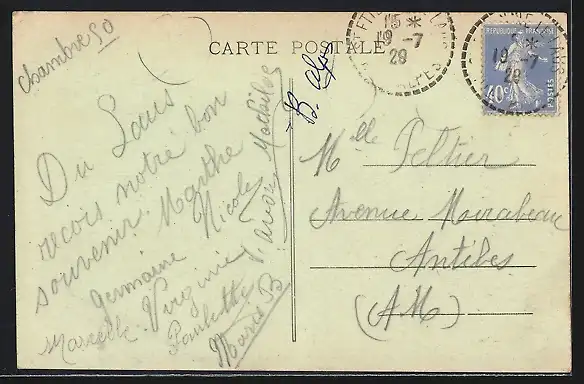 CARTE POSTALE
Chambre 50
B. Alpes
Du Laus
reçois notre bon
souvenir. Marthe
Germaine Nicole
Marcelle. Virginie
Paulette
Mathilde
Marie B
15 *
19 -7
29
ALPES
REPUBLIQUE FRANÇAISE
40c
POSTES
*
19 -7
29
Mlle Peltier
Avenue Mirabeau
Antibes
(AM)